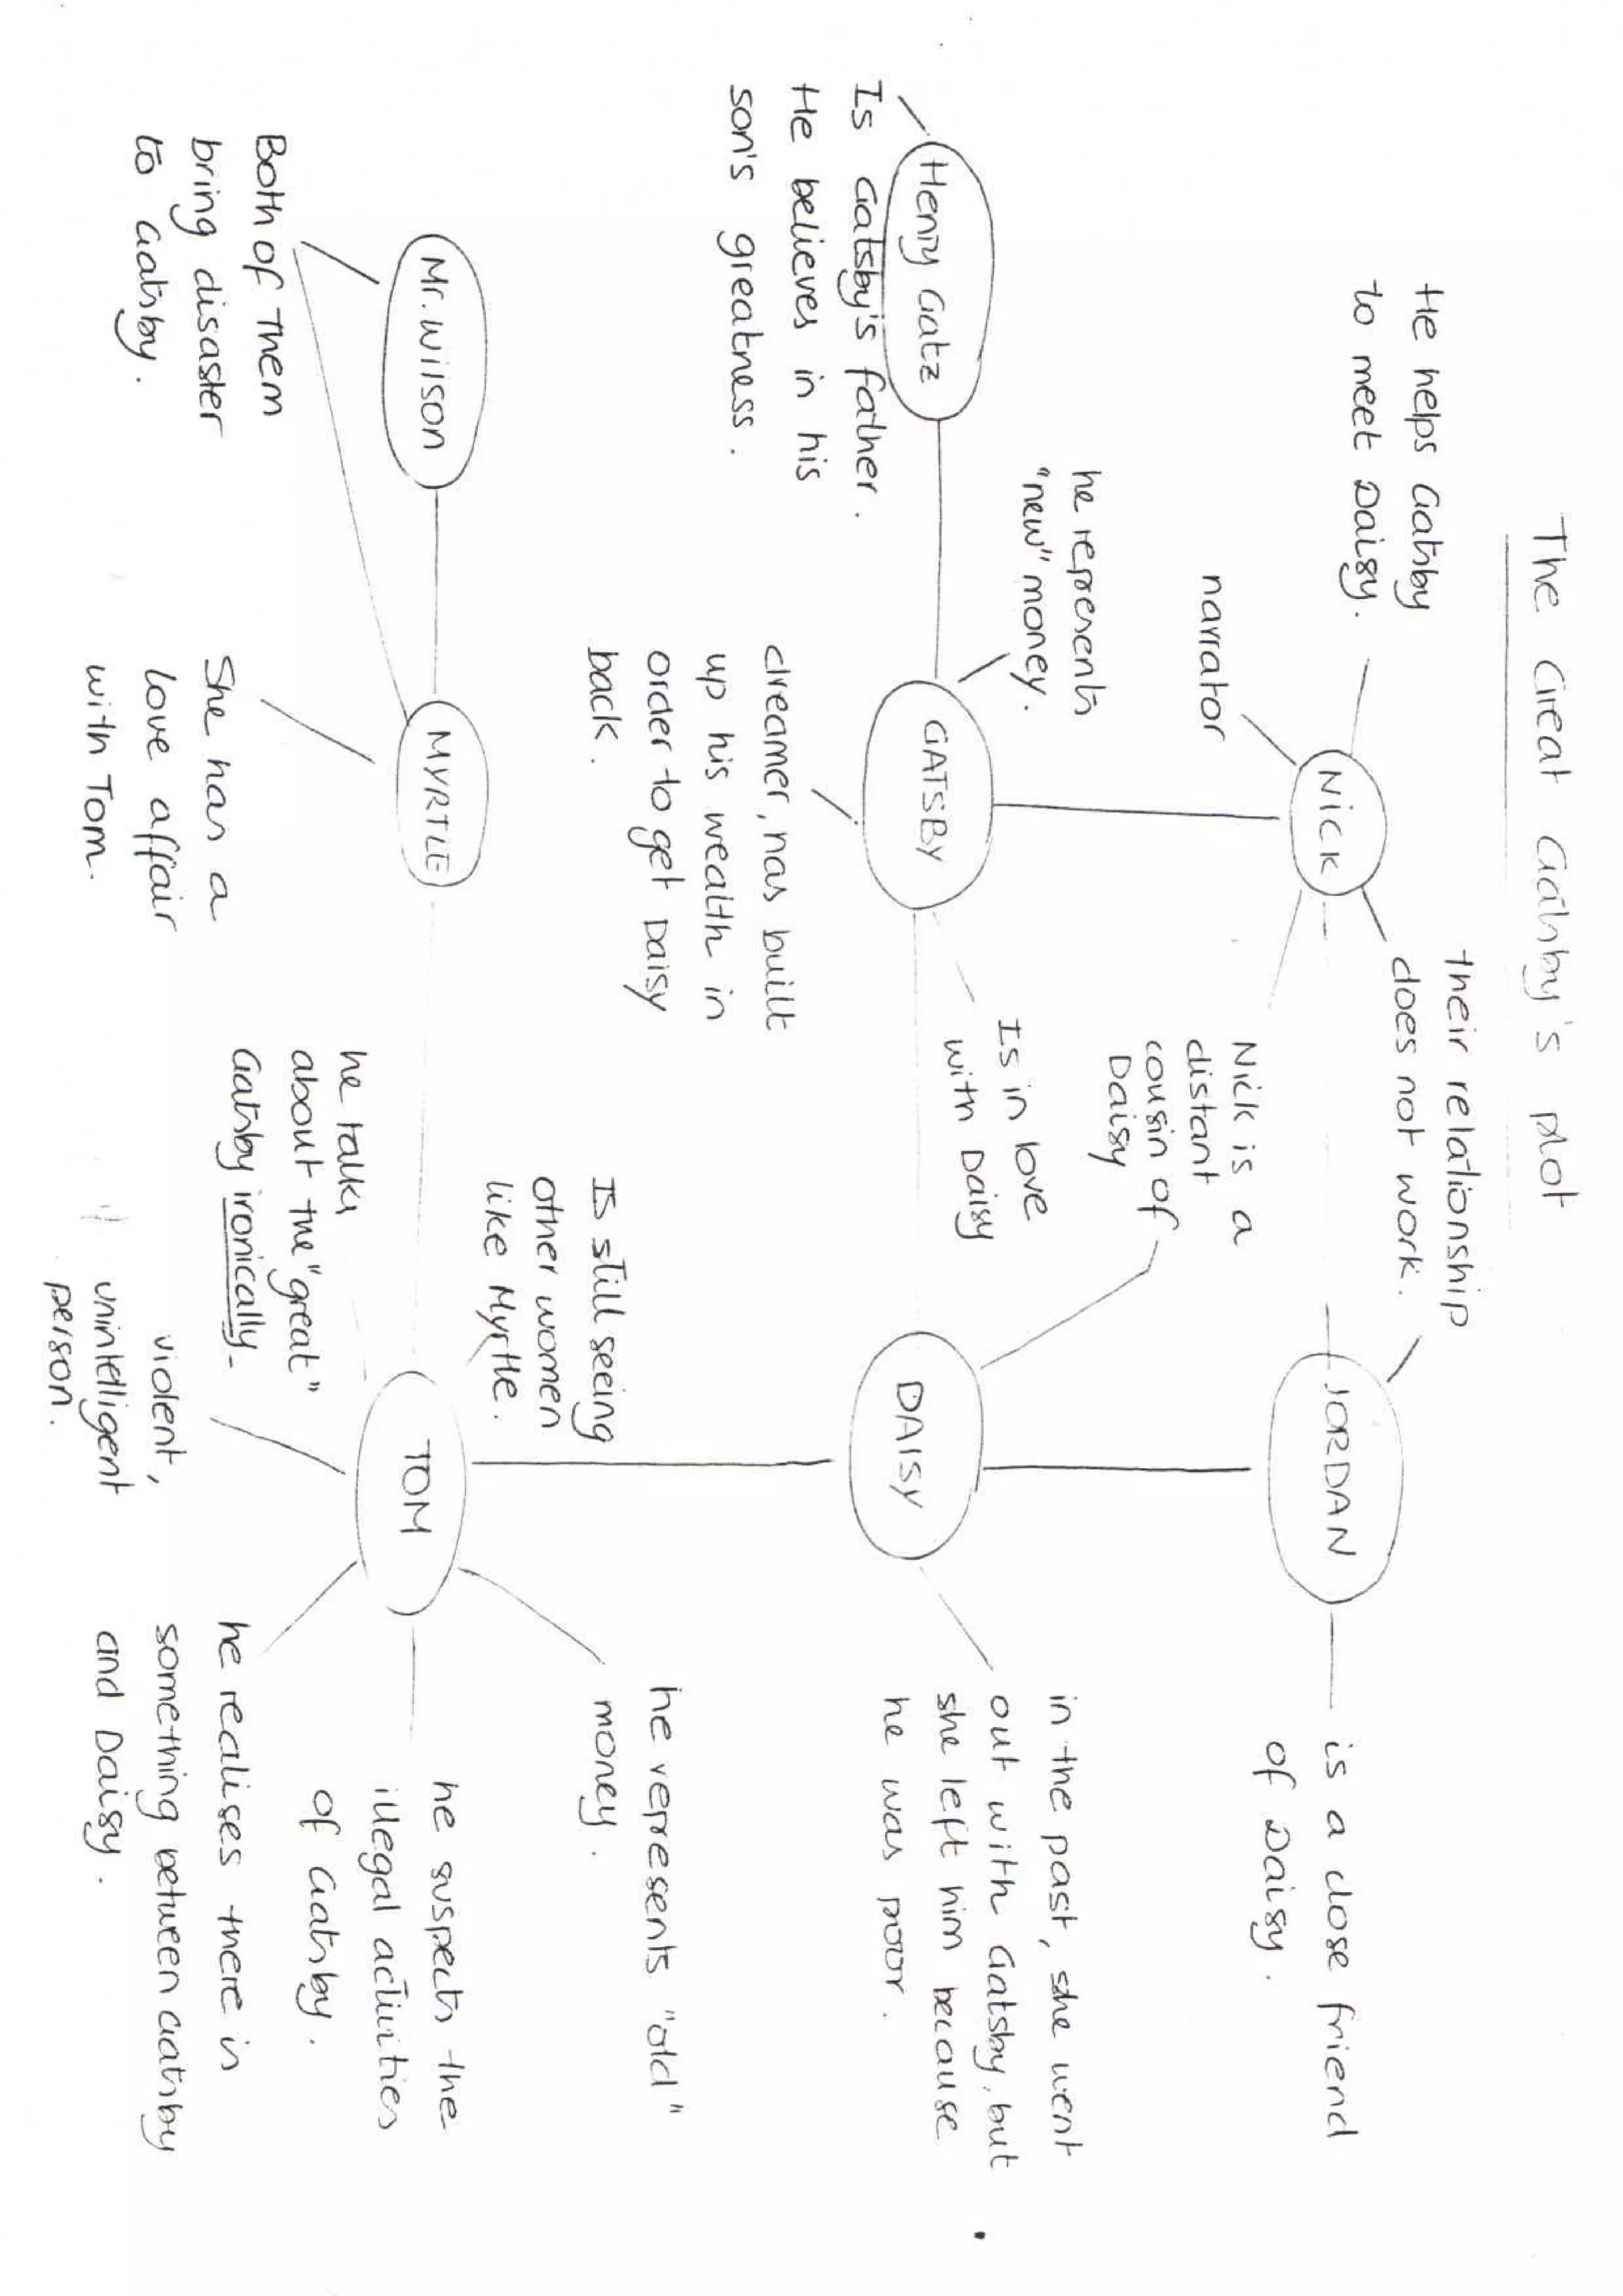 The Great Gatsby's plot
He helps Gatsby
to meet Daisy.
narrator
NICK
their relationship
does not work.
JORDAN
is a close friend
of Daisy.
Nick is a
distant
cousin of
Daisy
he represents
"new" money.
Henry Gatz
Is Gatsby's father.
He believes in his
son's greatness.
GATSBY
Is in love
with Daisy
dreamer, has built
up his wealth in
order to get Daisy
back.
DAISY
in the past, she went
out with Gatsby, but
she left him because
he was poor.
Is still seeing
other women
like Myrtle.
he represents "old"
money.
Mr. Wilson
Both of them
bring disaster
to Gatsby.
MYRTLE
She has a
love affair
with Tom.
TOM
he talks
about the "great"
Gatsby ironically.
violent,
unintelligent
person.
he suspects the
illegal activities
of Gatsby.
he realises there is
something between Gatsby
and Daisy.